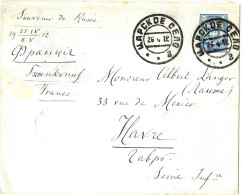 Souvenir de Russie
19 25 IV / 8 V 12
Франція
France
ЦАРСКОЕ СЕЛО
26 4 12
ЦАРСКОЕ СЕЛО
Monsieur Albert Langer
33 rue de Mexico
Havre
Гавръ
Seine Infre